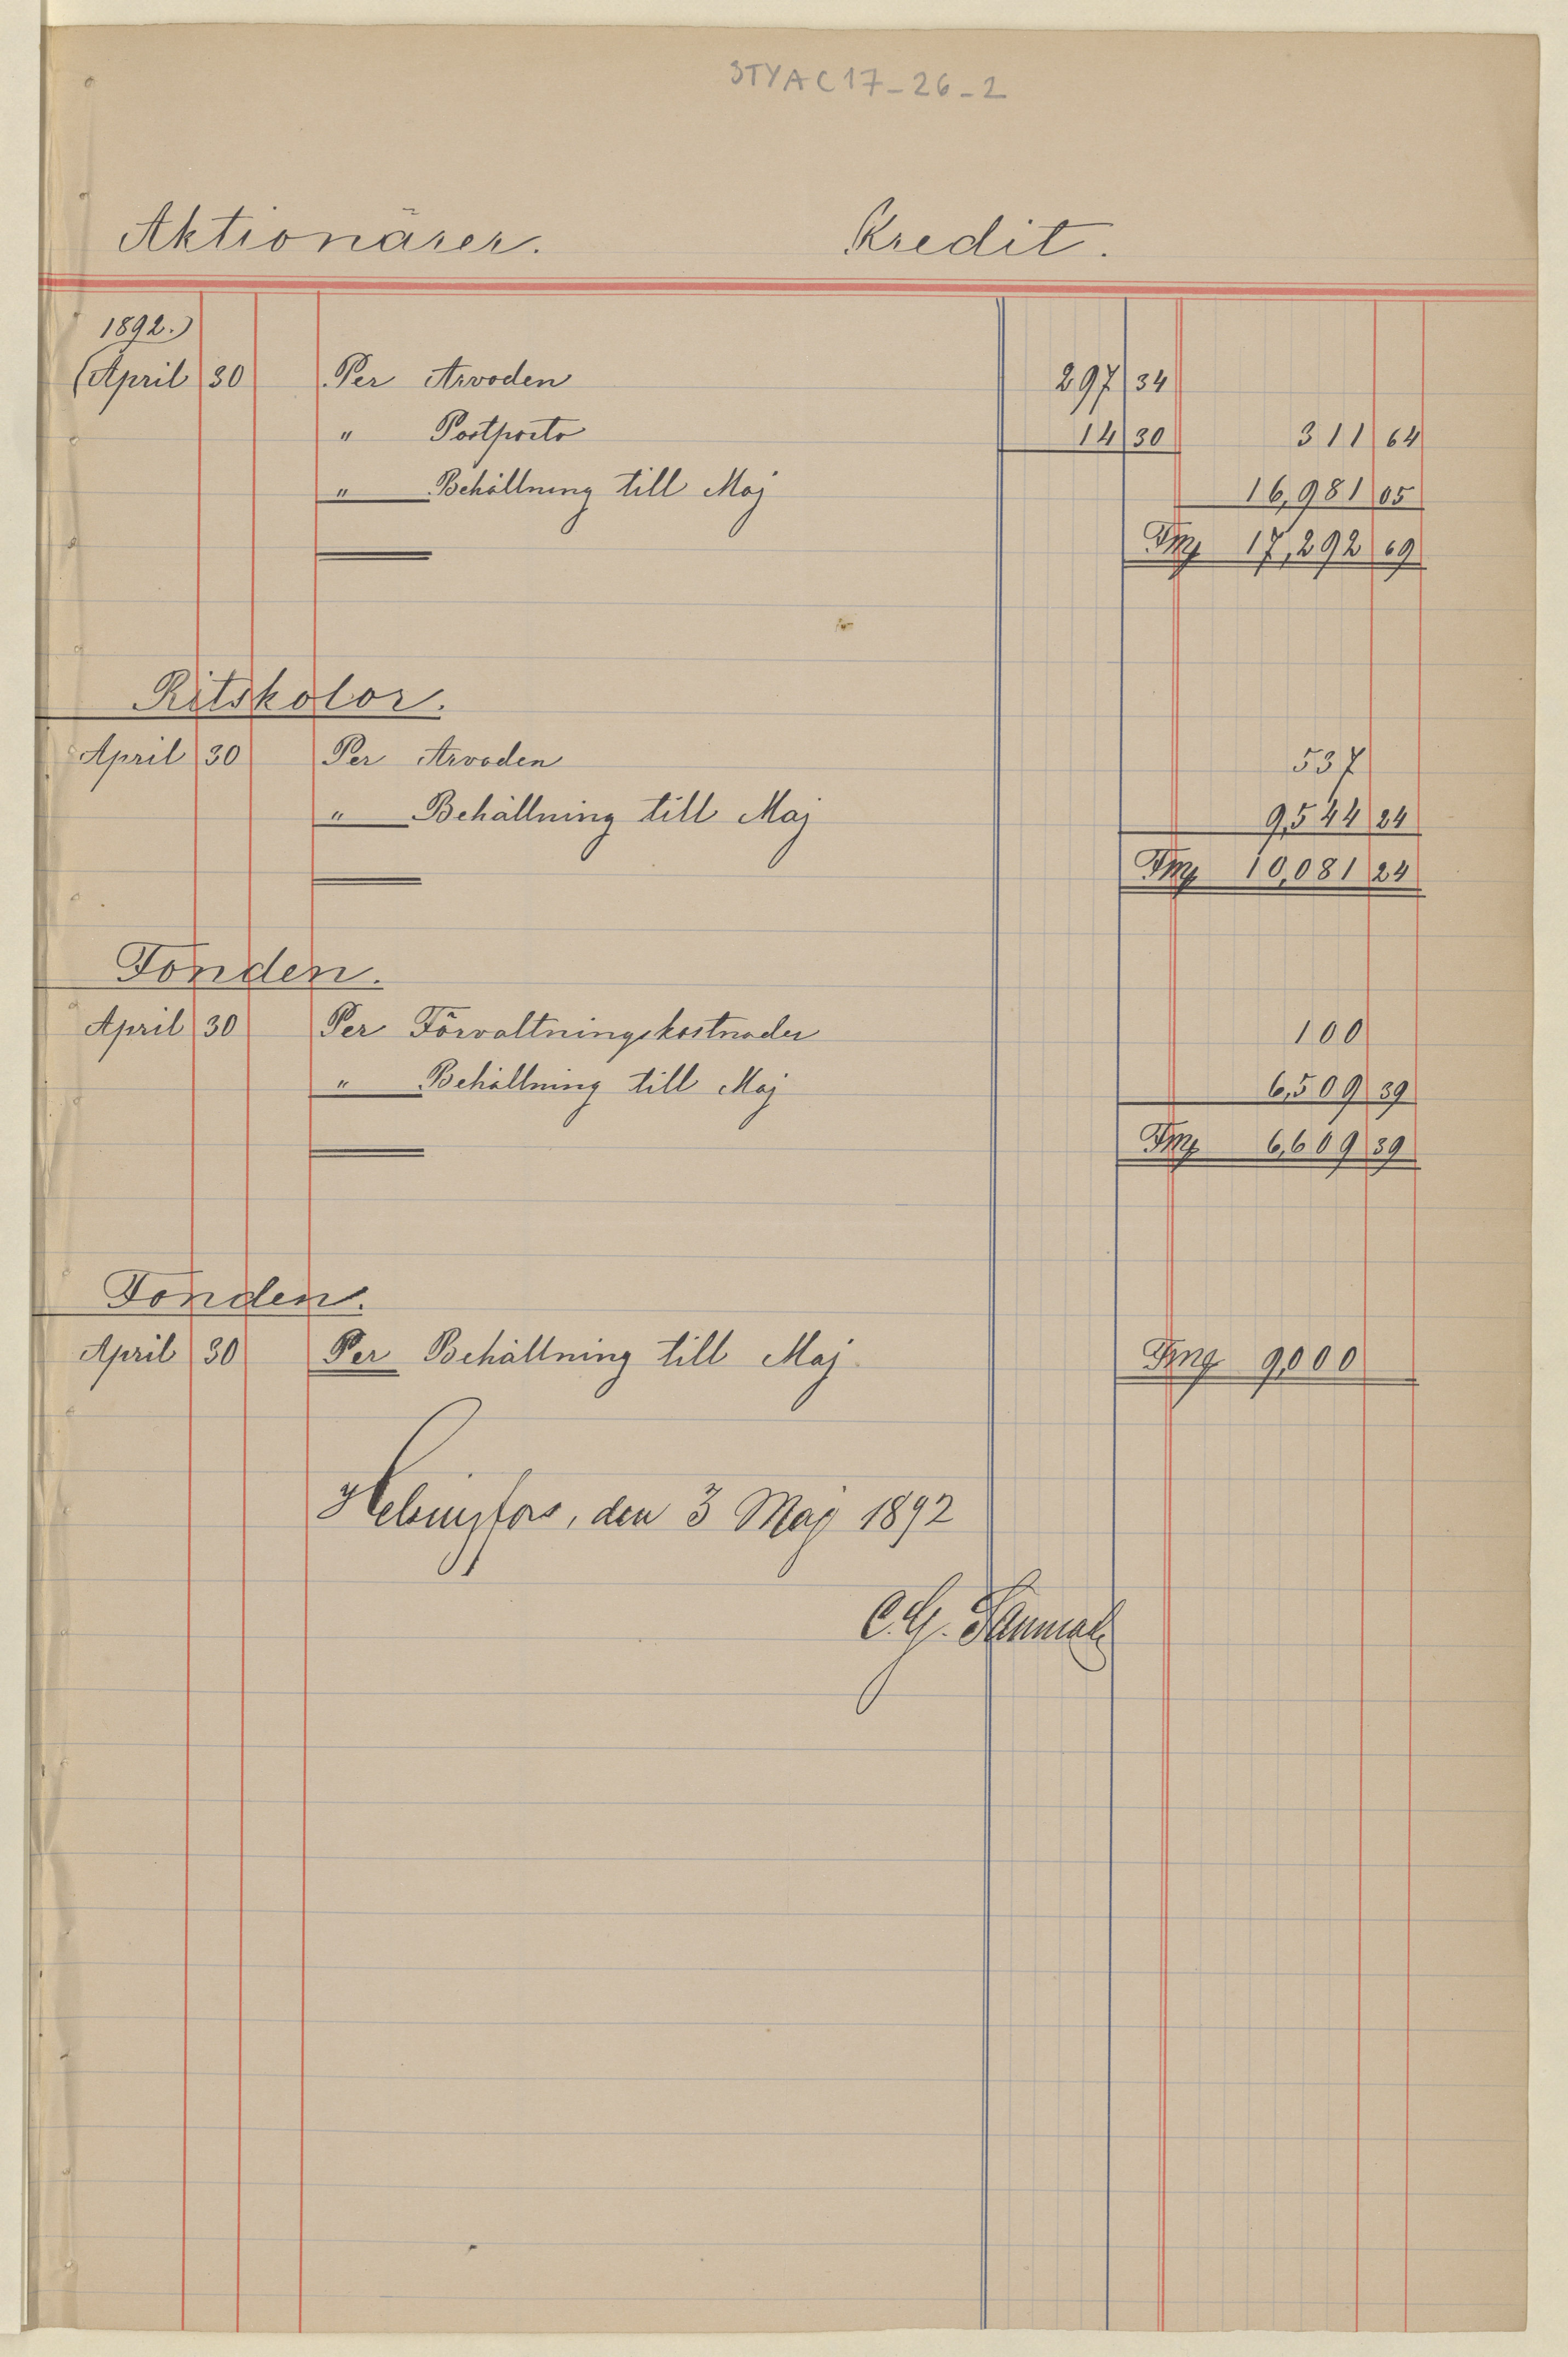 STYAC17-26-2
Aktionärer. Kredit.
1892.)
(April 30 Per Arvoden 297 34
" Postporto 14 30 311 64
" Behållning till Maj 16,981 05
Fmg 17,292 69
Ritskolor.
April 30 Per Arvoden 537
" Behållning till Maj 9,544 24
Fmg 10,081 24
Fonden.
April 30 Per Förvaltningskostnader 100
" Behållning till Maj 6,509 39
Fmg 6,609 39
Fonden.
April 30 Per Behållning till Maj Fmg 9,000
Helsingfors, den 3 Maj 1892
C. G.